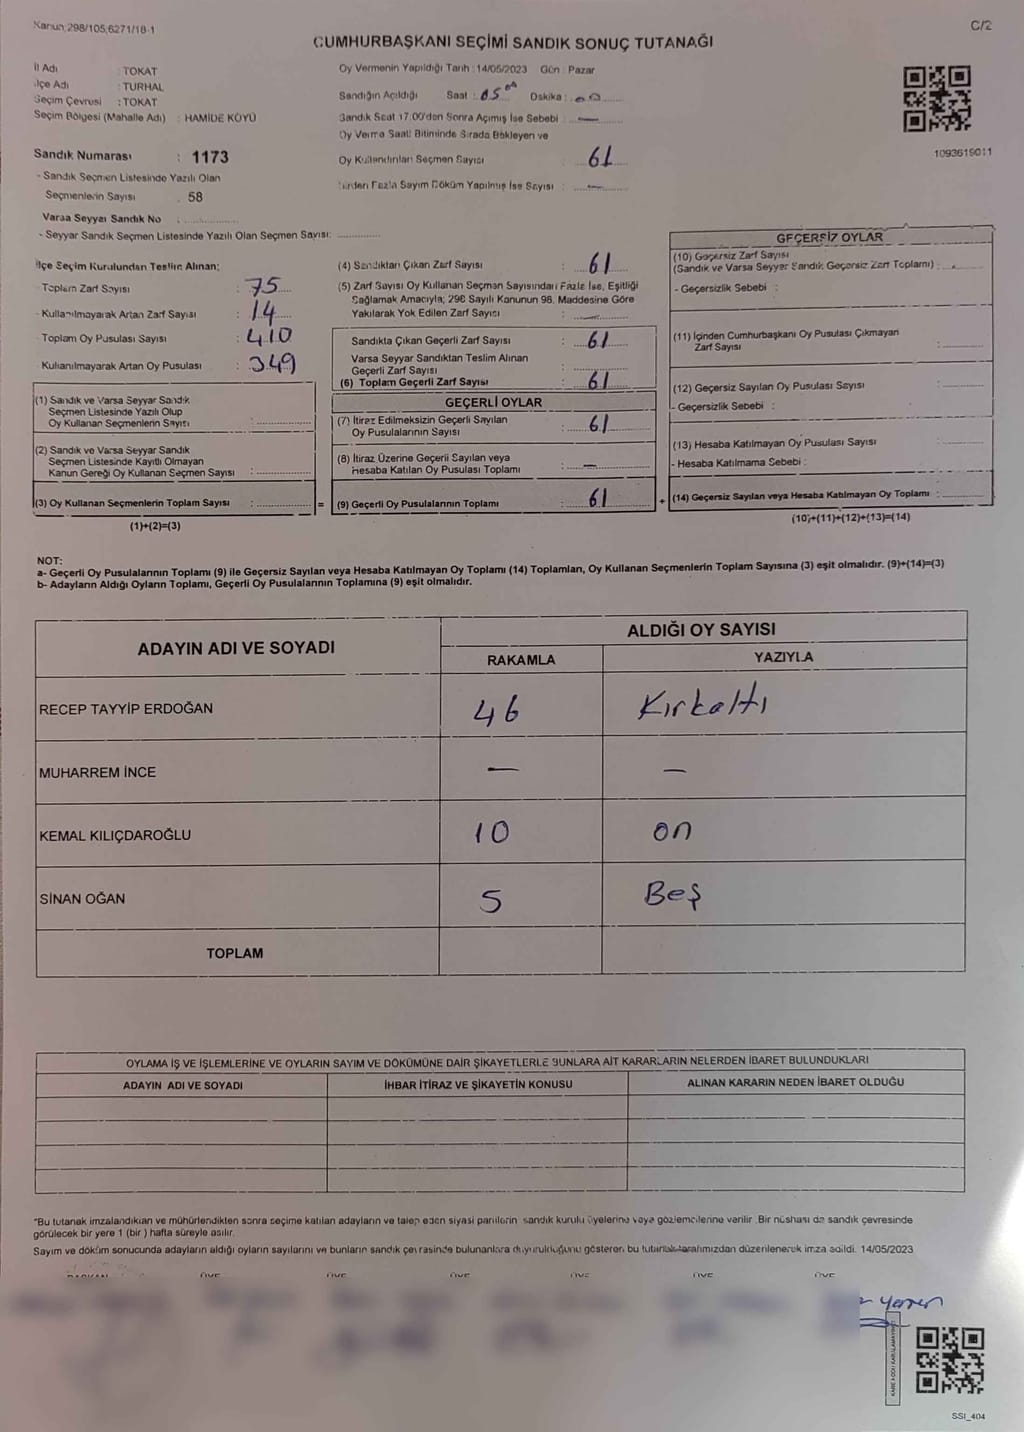 Kanun 298/105,6271/18-1
C/2
CUMHURBAŞKANI SEÇİMİ SANDIK SONUÇ TUTANAĞI
İl Adı : TOKAT
İlçe Adı : TURHAL
Seçim Çevresi : TOKAT
Seçim Bölgesi (Mahalle Adı) : HAMİDE KÖYÜ
Sandık Numarası : 1173
- Sandık Seçmen Listesinde Yazılı Olan
Seçmenlerin Sayısı : 58
Varsa Seyyar Sandık No :
- Seyyar Sandık Seçmen Listesinde Yazılı Olan Seçmen Sayısı:
Oy Vermenin Yapıldığı Tarih : 14/05/2023 Gün : Pazar
Sandığın Açıldığı Saat : Dakika :
Sandık Saat 17.00'den Sonra Açılmış İse Sebebi : —
Oy Verme Saati Bitiminde Sırada Bekleyen ve
Oy Kullandırılan Seçmen Sayısı : 61
Birden Fazla Sayım Döküm Yapılmış İse Sayısı : —
1093619011
İlçe Seçim Kurulundan Teslim Alınan;
Toplam Zarf Sayısı : 75
Kullanılmayarak Artan Zarf Sayısı : 14
Toplam Oy Pusulası Sayısı : 410
Kullanılmayarak Artan Oy Pusulası : 349
(1) Sandık ve Varsa Seyyar Sandık
Seçmen Listesinde Yazılı Olup
Oy Kullanan Seçmenlerin Sayısı :
(2) Sandık ve Varsa Seyyar Sandık
Seçmen Listesinde Kayıtlı Olmayan
Kanun Gereği Oy Kullanan Seçmen Sayısı :
(3) Oy Kullanan Seçmenlerin Toplam Sayısı : =
(1)+(2)=(3)
(4) Sandıktan Çıkan Zarf Sayısı : 61
(5) Zarf Sayısı Oy Kullanan Seçmen Sayısından Fazla İse, Eşitliği
Sağlamak Amacıyla; 298 Sayılı Kanunun 98. Maddesine Göre
Yakılarak Yok Edilen Zarf Sayısı : —
Sandıkta Çıkan Geçerli Zarf Sayısı : 61
Varsa Seyyar Sandıktan Teslim Alınan
Geçerli Zarf Sayısı :
(6) Toplam Geçerli Zarf Sayısı : 61
GEÇERLİ OYLAR
(7) İtiraz Edilmeksizin Geçerli Sayılan
Oy Pusulalarının Sayısı : 61
(8) İtiraz Üzerine Geçerli Sayılan veya
Hesaba Katılan Oy Pusulası Toplamı : —
(9) Geçerli Oy Pusulalarının Toplamı : 61 +
GEÇERSİZ OYLAR
(10) Geçersiz Zarf Sayısı
(Sandık ve Varsa Seyyar Sandık Geçersiz Zarf Toplamı) :
- Geçersizlik Sebebi :
(11) İçinden Cumhurbaşkanı Oy Pusulası Çıkmayan
Zarf Sayısı :
(12) Geçersiz Sayılan Oy Pusulası Sayısı :
- Geçersizlik Sebebi :
(13) Hesaba Katılmayan Oy Pusulası Sayısı :
- Hesaba Katılmama Sebebi :
(14) Geçersiz Sayılan veya Hesaba Katılmayan Oy Toplamı :
(10)+(11)+(12)+(13)=(14)
NOT:
a- Geçerli Oy Pusulalarının Toplamı (9) ile Geçersiz Sayılan veya Hesaba Katılmayan Oy Toplamı (14) Toplamları, Oy Kullanan Seçmenlerin Toplam Sayısına (3) eşit olmalıdır. (9)+(14)=(3)
b- Adayların Aldığı Oyların Toplamı, Geçerli Oy Pusulalarının Toplamına (9) eşit olmalıdır.
ADAYIN ADI VE SOYADI
ALDIĞI OY SAYISI
RAKAMLA YAZIYLA
RECEP TAYYİP ERDOĞAN 46 Kırkaltı
MUHARREM İNCE — —
KEMAL KILIÇDAROĞLU 10 on
SİNAN OĞAN 5 Beş
TOPLAM
OYLAMA İŞ VE İŞLEMLERİNE VE OYLARIN SAYIM VE DÖKÜMÜNE DAİR ŞİKAYETLERLE BUNLARA AİT KARARLARIN NELERDEN İBARET BULUNDUKLARI
ADAYIN ADI VE SOYADI İHBAR İTİRAZ VE ŞİKAYETİN KONUSU ALINAN KARARIN NEDEN İBARET OLDUĞU
*Bu tutanak imzalandıktan ve mühürlendikten sonra seçime katılan adayların ve talep eden siyasi partilerin sandık kurulu üyelerine veya gözlemcilerine verilir. Bir nüshası da sandık çevresinde
görülecek bir yere 1 (bir) hafta süreyle asılır.
Sayım ve döküm sonucunda adayların aldığı oyların sayılarını ve bunların sandık çevresinde bulunanlara duyurulduğunu gösteren bu tutanak tarafımızdan düzenlenerek imza edildi. 14/05/2023
BAŞKAN ÜYE ÜYE ÜYE ÜYE ÜYE ÜYE
SSI_404